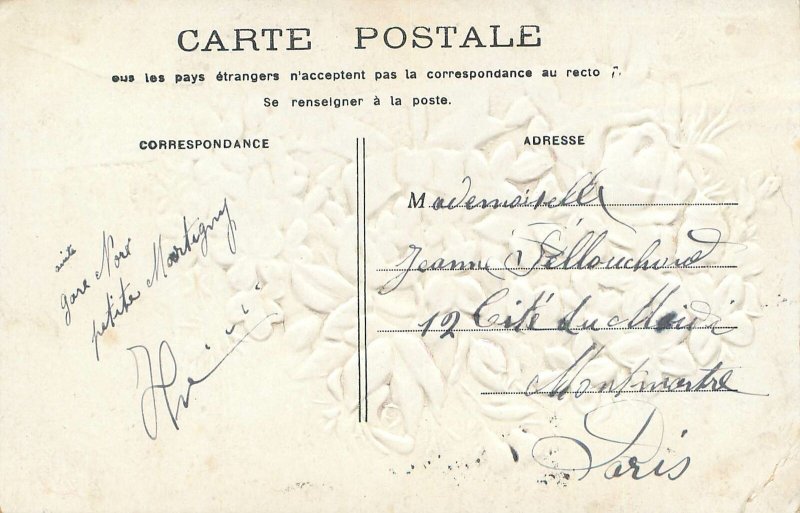 CARTE POSTALE
ous les pays étrangers n'acceptent pas la correspondance au recto
Se renseigner à la poste.
CORRESPONDANCE
ADRESSE
gare Nord
petite Martigny
Mademoiselle
Jeanne
12 Cité du Midi
Montmartre
Paris